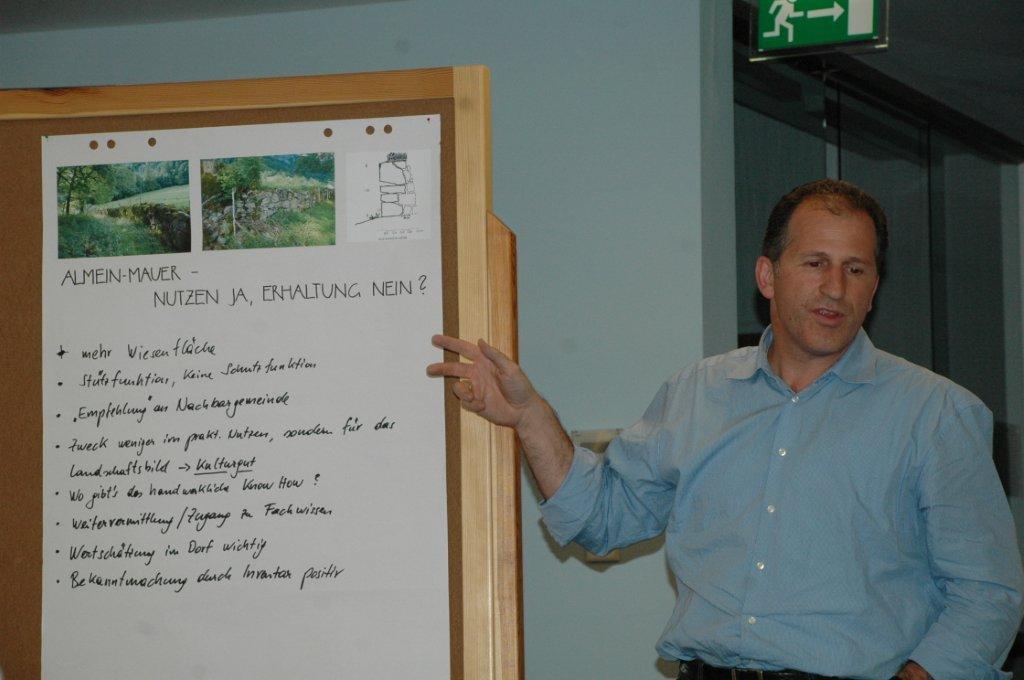 ALMEIN-MAUER –
NUTZEN JA, ERHALTUNG NEIN?
+ mehr Wiesenfläche
• Stützfunktion, keine Schutzfunktion
• "Empfehlung" an Nachbargemeinde
• Zweck weniger im prakt. Nutzen, sondern für das
Landschaftsbild → Kulturgut
• Wo gibt's das handwerkliche Know How?
• Weitervermittlung / Zugang zu Fachwissen
• Wertschätzung im Dorf wichtig
• Bekanntmachung durch Inventar positiv